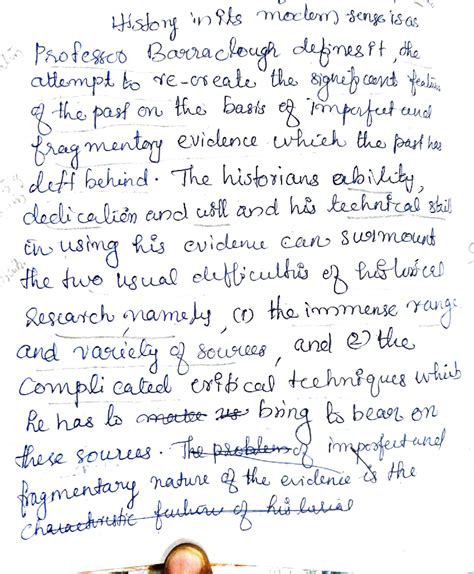 History in its modern sense is as
Professor Barraclough defines it, the
attempt to re-create the significant featur
of the past on the basis of imperfect and
fragmentary evidence which the past has
left behind. The historians ability,
dedication and will and his technical skill
in using his evidence can surmount
the two usual difficulties of historical
Research, namely, (1) the immense range
and variety of sources, and (2) the
complicated critical techniques which
he has to make us bring to bear on
these sources. The problem of imperfect and
fragmentary nature of the evidence is the
characteristic feature of historical